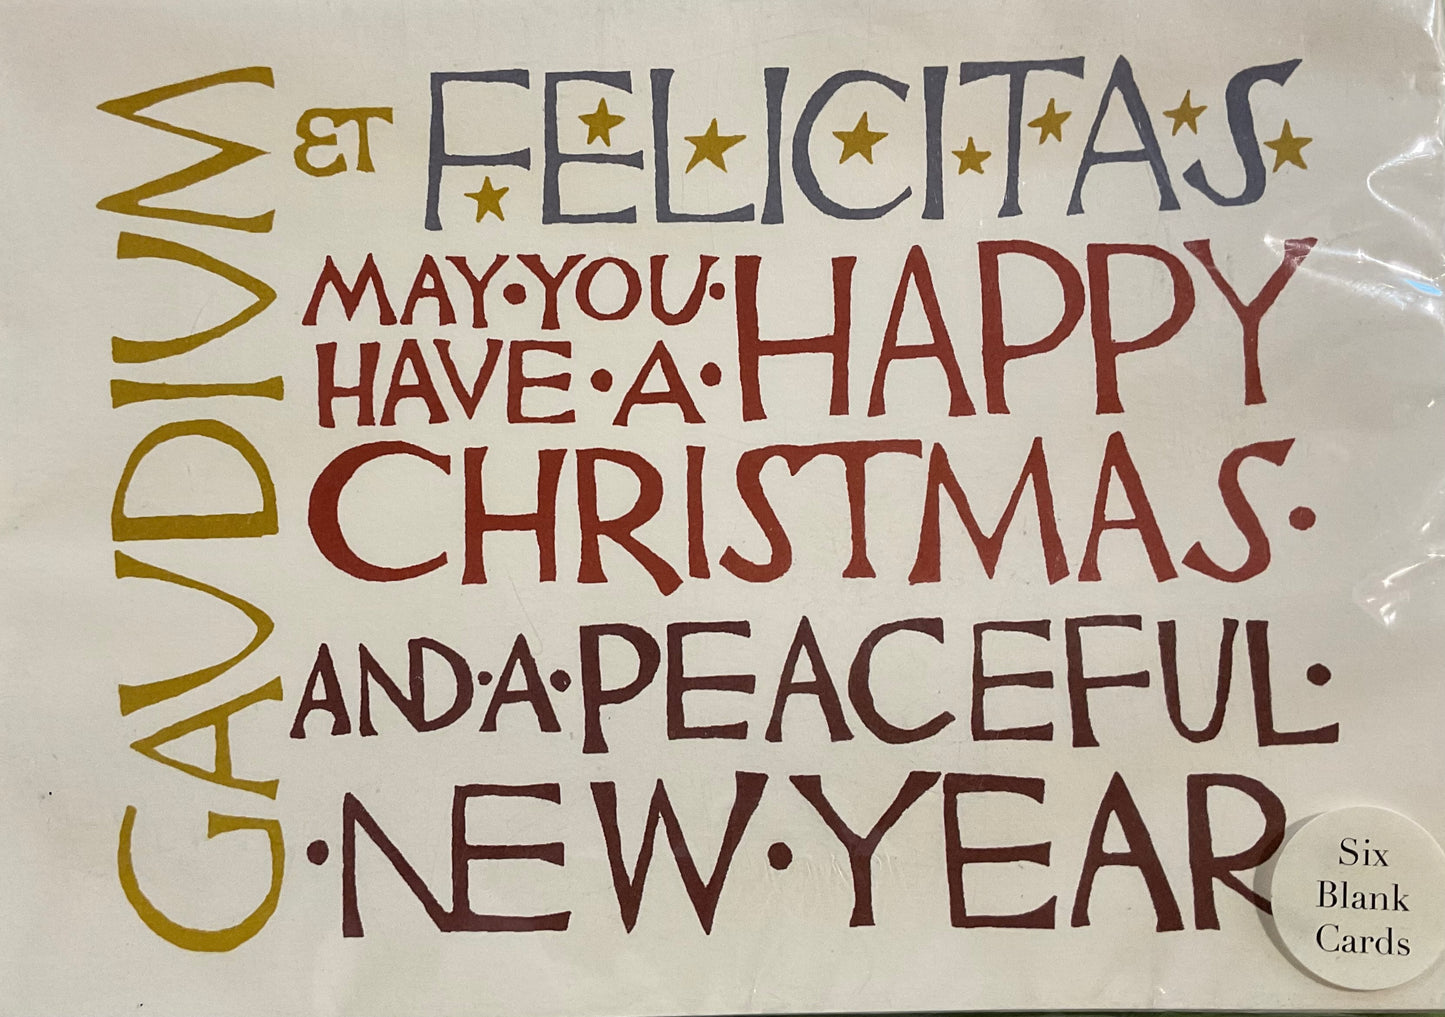 GAVDIVM
ET FELICITAS
MAY·YOU·HAPPY
HAVE·A·
CHRISTMAS·
AND·A·PEACEFUL·
·NEW·YEAR
Six
Blank
Cards